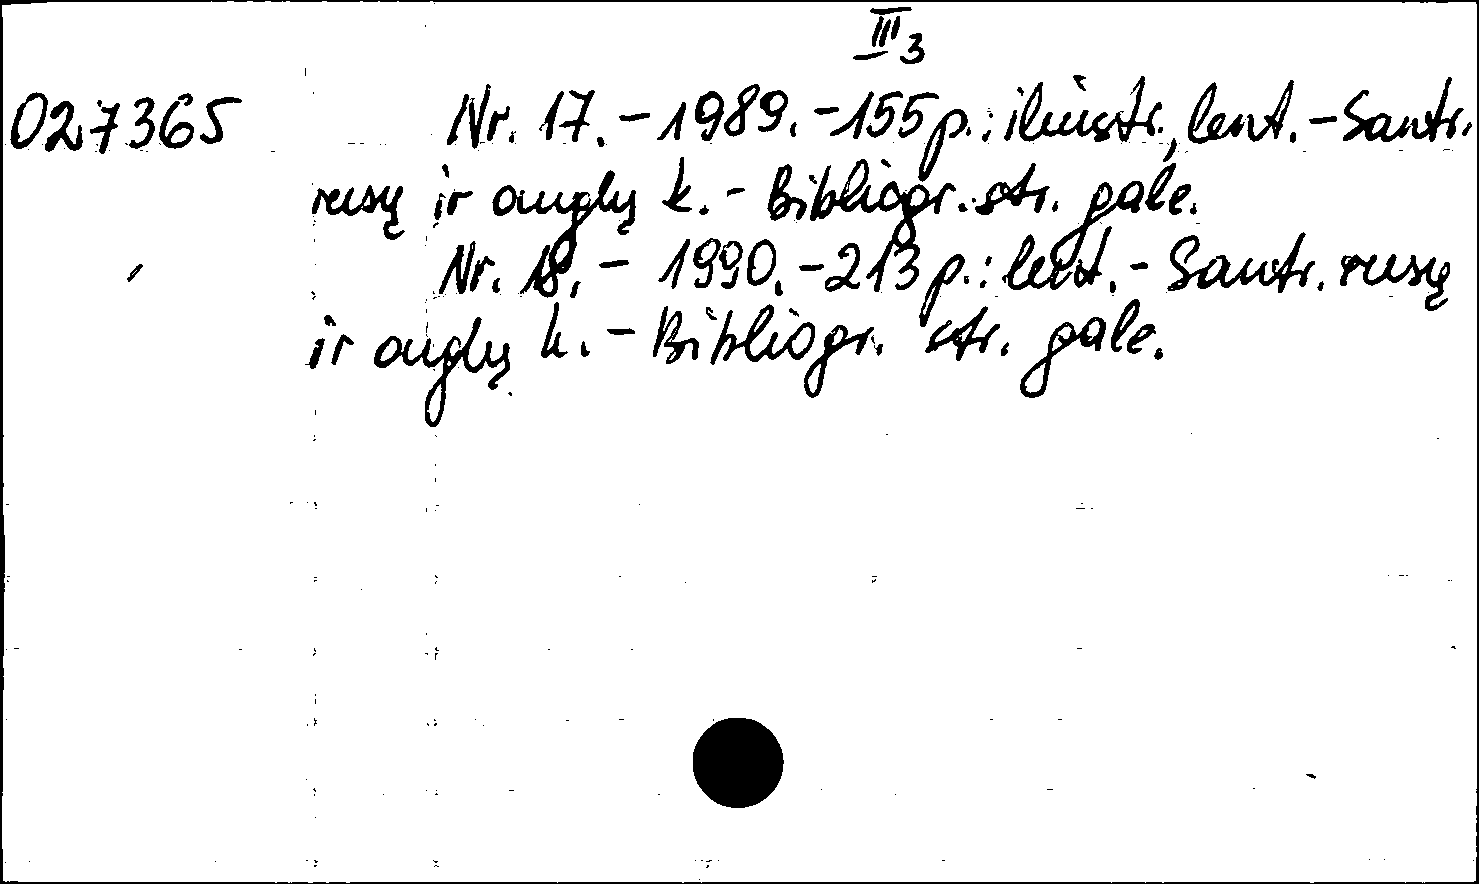 III3
027365 Nr. 17. – 1989. – 155 p.: iliustr., lent. – Santr.
rusų ir anglų k. – Bibliogr. str. gale.
Nr. 18. – 1990. – 213 p.: lent. – Santr. rusų
ir anglų k. – Bibliogr. str. gale.